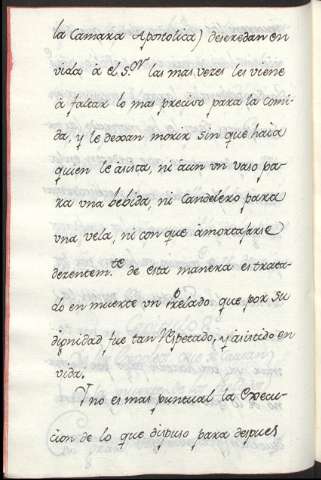 la Camara Apostolica) deseredan en
vida à el S.or las mas vezes les viene
à faltar lo mas preciso para la comi-
da, y le dexan morir sin que haia
quien le àsista, ni àun vn vaso pa-
ra vna bebida, ni Candelero para
vna vela, ni con que àmortajarse
dezentem.te de esta manera es trata-
do en muerte vn Prelado que por su
dignidad fue tan Respetado, y àsistido en
vida.
Y no es mas puntual la Execu-
cion de lo que dispuso para despues